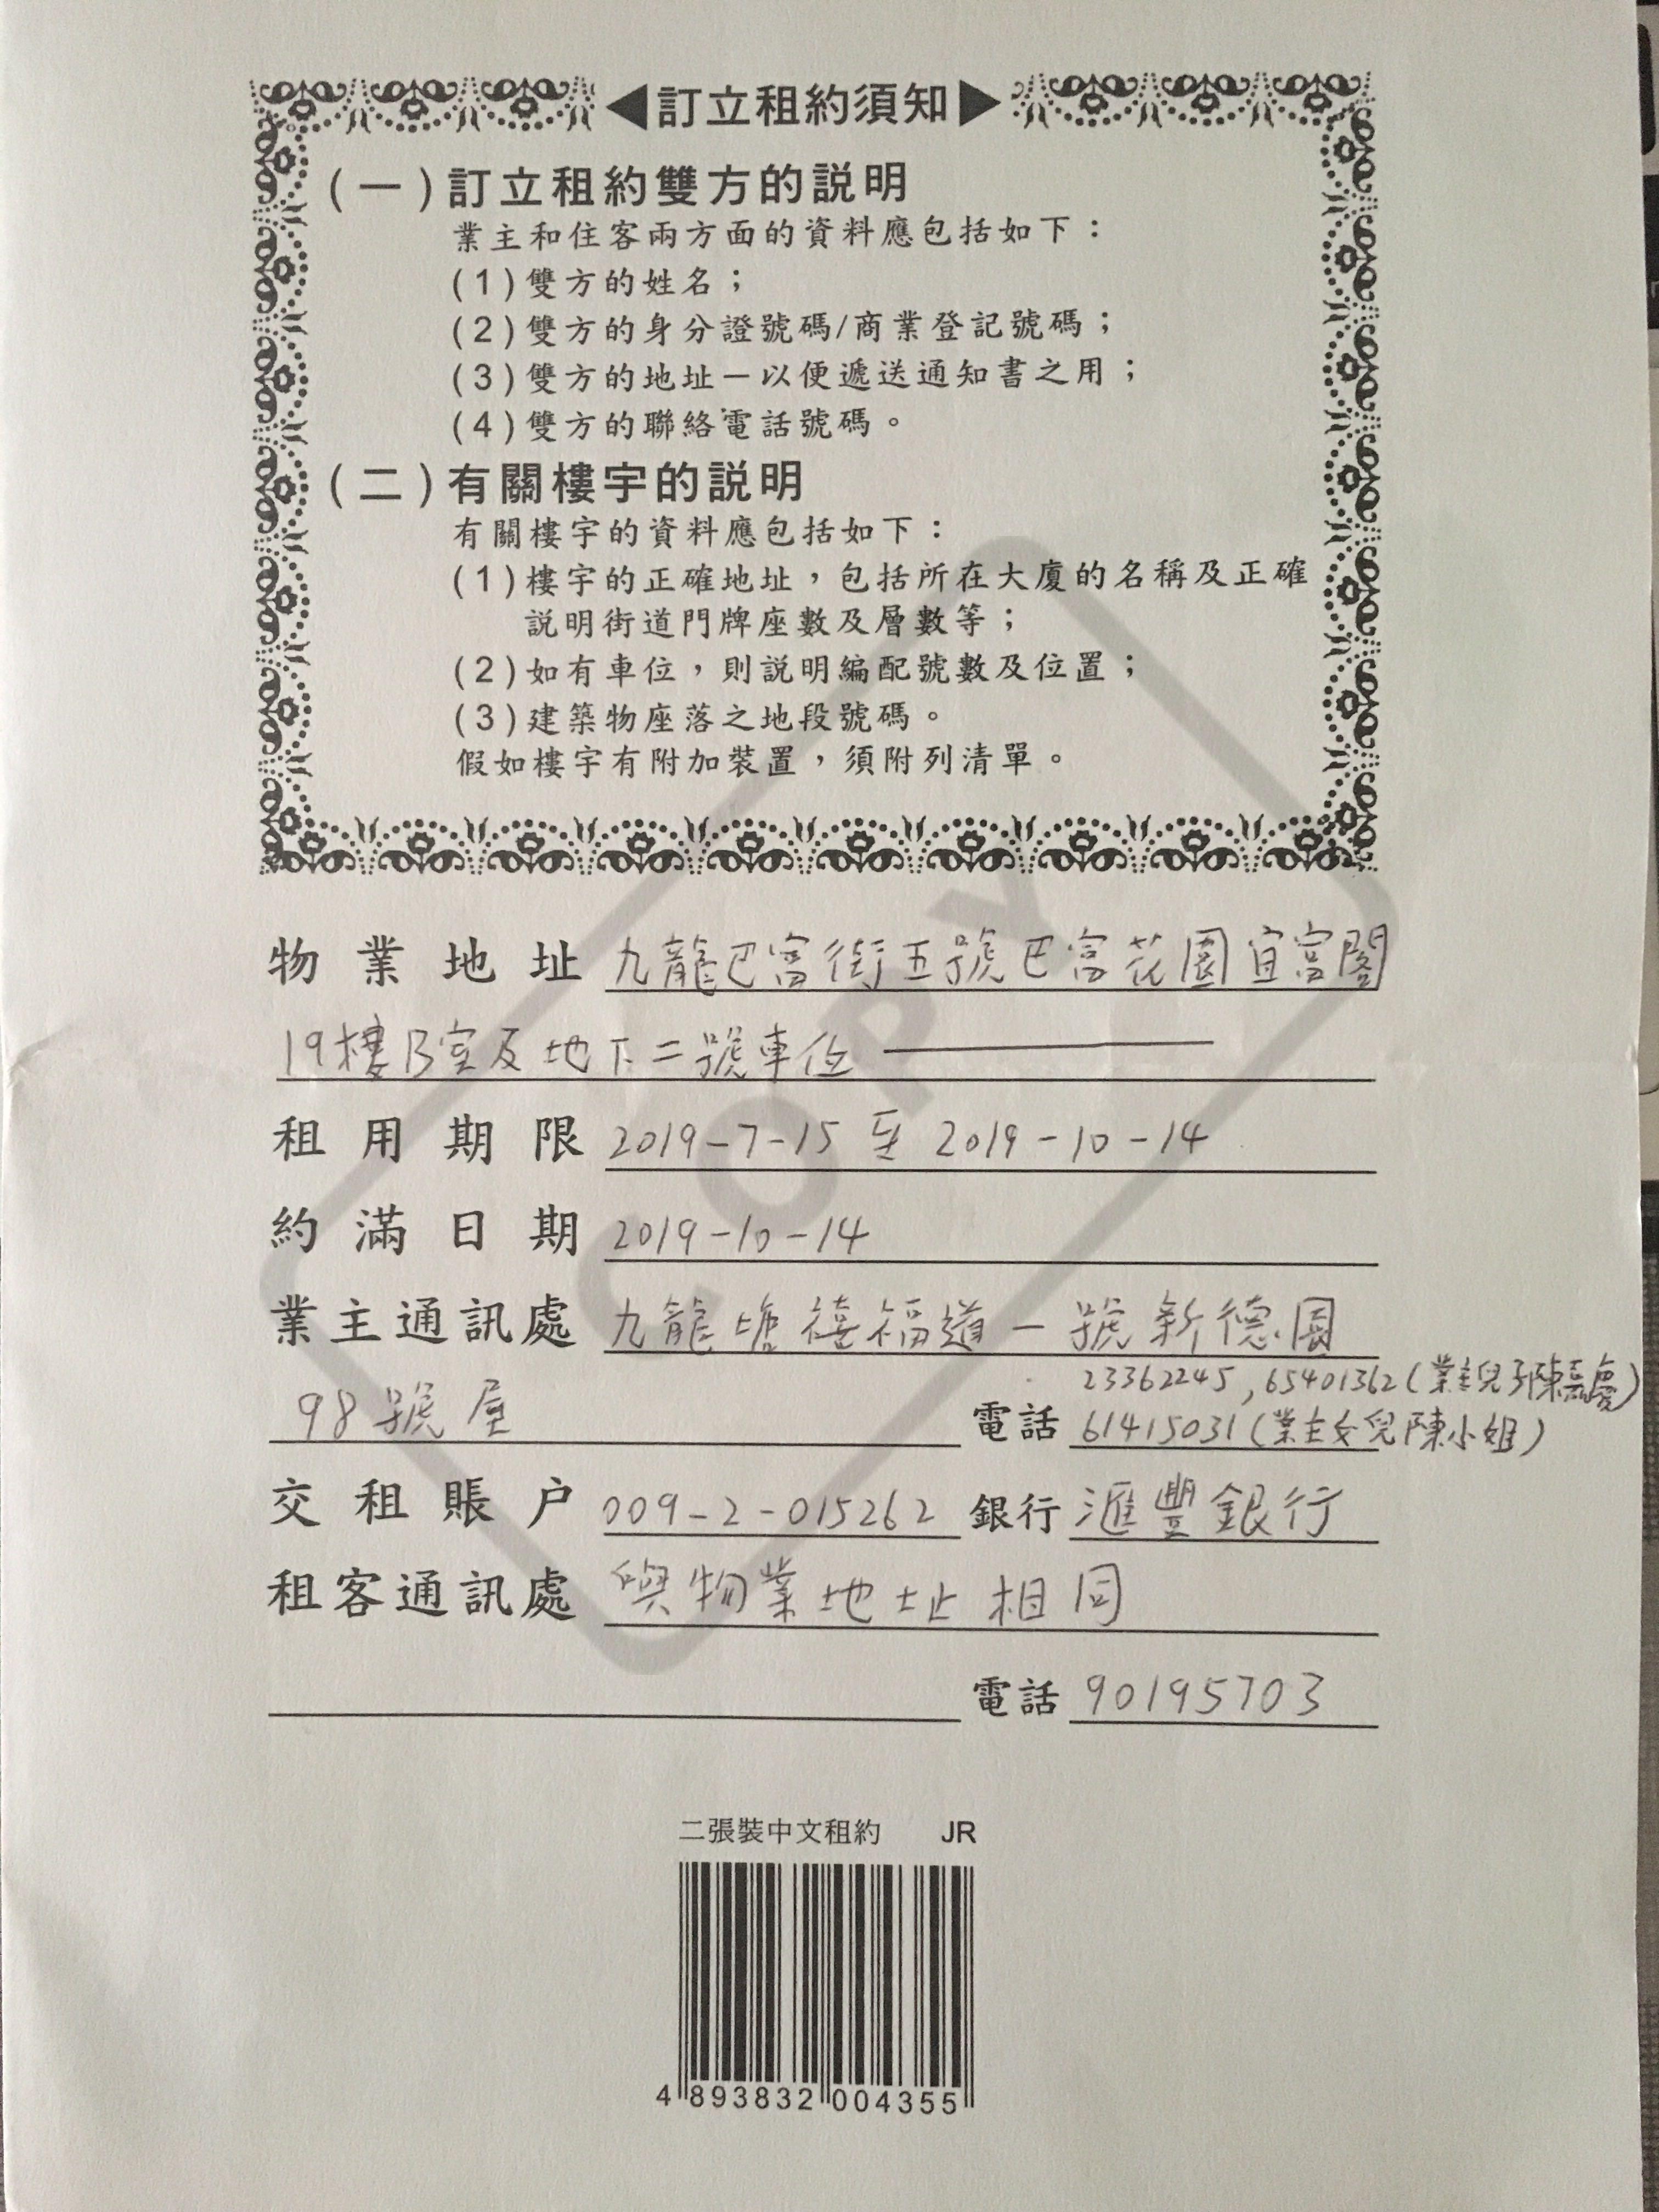 ◀訂立租約須知▶
(一)訂立租約雙方的説明
業主和住客兩方面的資料應包括如下：
(1)雙方的姓名；
(2)雙方的身分證號碼/商業登記號碼；
(3)雙方的地址－以便遞送通知書之用；
(4)雙方的聯絡電話號碼。
(二)有關樓宇的説明
有關樓宇的資料應包括如下：
(1)樓宇的正確地址，包括所在大廈的名稱及正確
説明街道門牌座數及層數等；
(2)如有車位，則説明編配號數及位置；
(3)建築物座落之地段號碼。
假如樓宇有附加裝置，須附列清單。
COPY
物業地址 九龍巴富街五號巴富花園宜富閣
19樓B室及地下二號車位
租用期限 2019-7-15 至 2019-10-14
約滿日期 2019-10-14
業主通訊處 九龍塘禧福道一號新德園
23362245, 65401362 (業主兒子陳嘉慶)
98號屋 電話 61415031 (業主女兒陳小姐)
交租賬户 009-2-015262 銀行 滙豐銀行
租客通訊處 與物業地址相同
電話 90195703
二張裝中文租約 JR
4 893832 004355